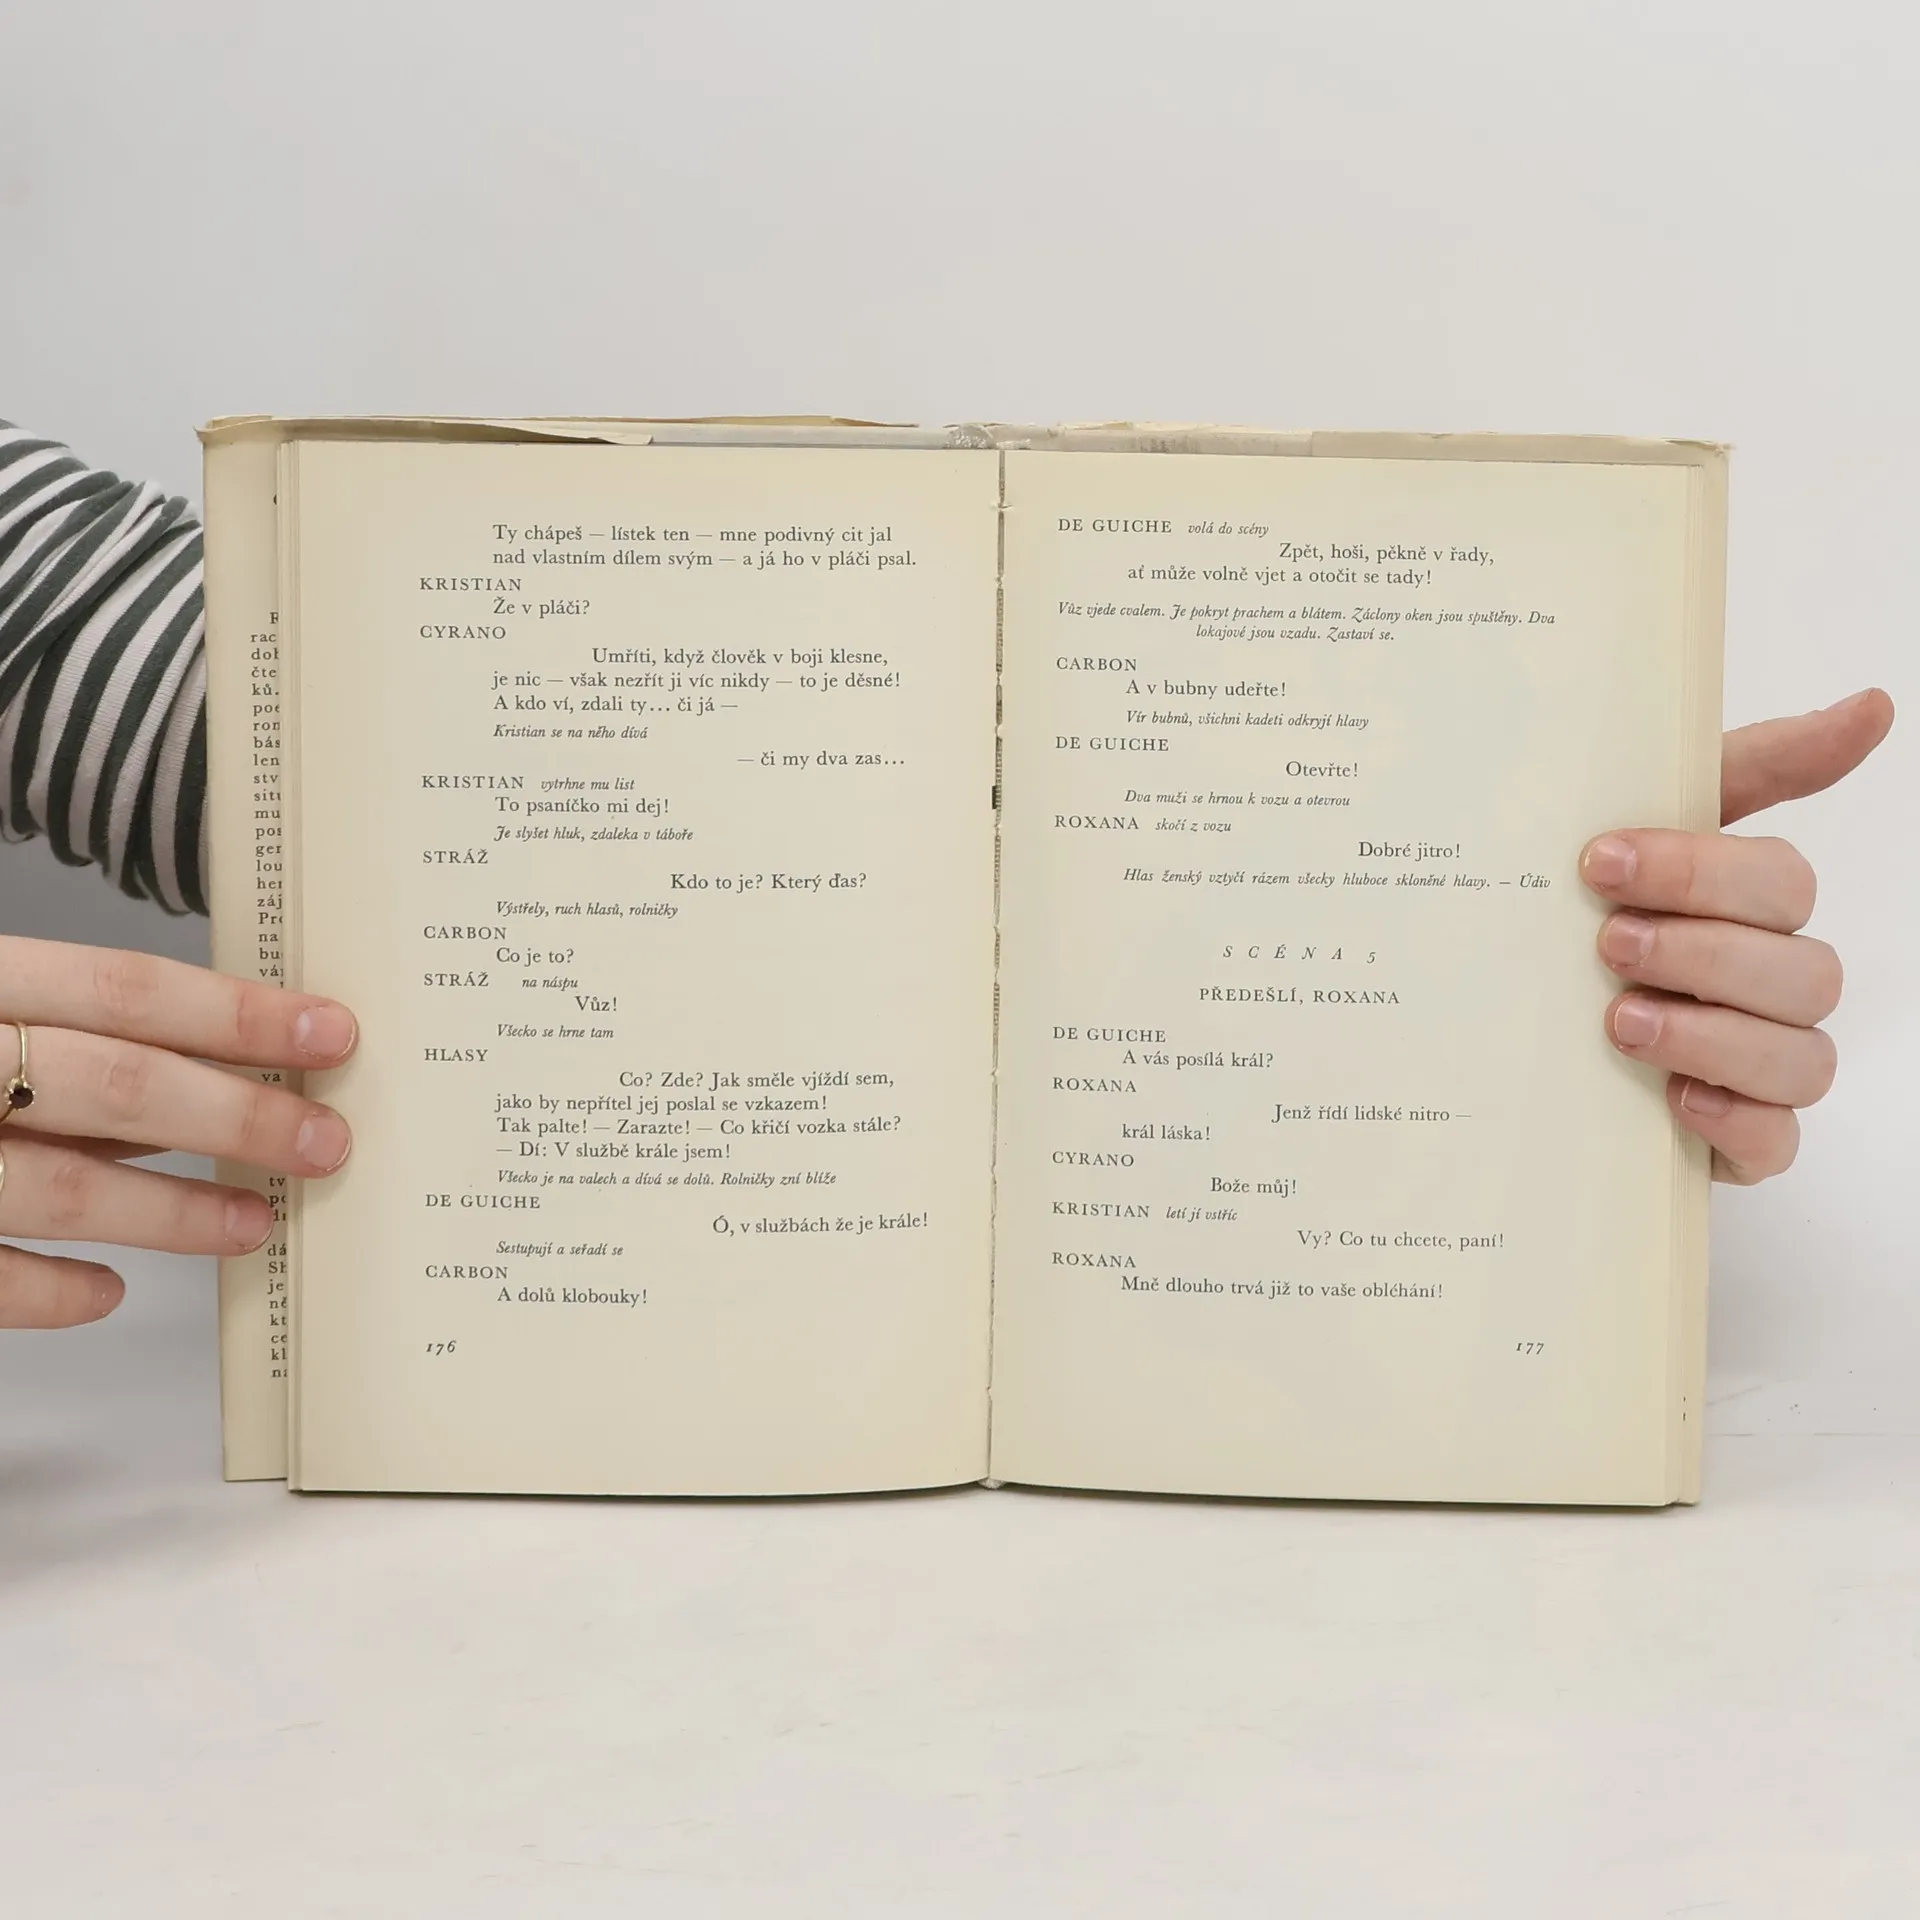 Ty chápeš — lístek ten — mne podivný cit jal
nad vlastním dílem svým — a já ho v pláči psal.
KRISTIAN
Že v pláči?
CYRANO
Umříti, když člověk v boji klesne,
je nic — však nezřít ji víc nikdy — to je děsné!
A kdo ví, zdali ty... či já —
Kristian se na něho dívá
— či my dva zas...
KRISTIAN vytrhne mu list
To psaníčko mi dej!
Je slyšet hluk, zdaleka v táboře
STRÁŽ
Kdo to je? Který ďas?
Výstřely, ruch hlasů, rolničky
CARBON
Co je to?
STRÁŽ na náspu
Vůz!
Všecko se hrne tam
HLASY
Co? Zde? Jak směle vjíždí sem,
jako by nepřítel jej poslal se vzkazem!
Tak palte! — Zarazte! — Co křičí vozka stále?
— Dí: V službě krále jsem!
Všecko je na valech a dívá se dolů. Rolničky zní blíže
DE GUICHE
Ó, v službách že je krále!
Sestupují a seřadí se
CARBON
A dolů klobouky!
176
DE GUICHE volá do scény
Zpět, hoši, pěkně v řady,
ať může volně vjet a otočit se tady!
Vůz vjede cvalem. Je pokryt prachem a blátem. Záclony oken jsou spuštěny. Dva
lokajové jsou vzadu. Zastaví se.
CARBON
A v bubny udeřte!
Vír bubnů, všichni kadeti odkryjí hlavy
DE GUICHE
Otevřte!
Dva muži se hrnou k vozu a otevrou
ROXANA skočí z vozu
Dobré jitro!
Hlas ženský vztyčí rázem všecky hluboce skloněné hlavy. — Údiv
SCÉNA 5
PŘEDEŠLÍ, ROXANA
DE GUICHE
A vás posílá král?
ROXANA
Jenž řídí lidské nitro —
král láska!
CYRANO
Bože můj!
KRISTIAN letí jí vstříc
Vy? Co tu chcete, paní!
ROXANA
Mně dlouho trvá již to vaše obléhání!
177